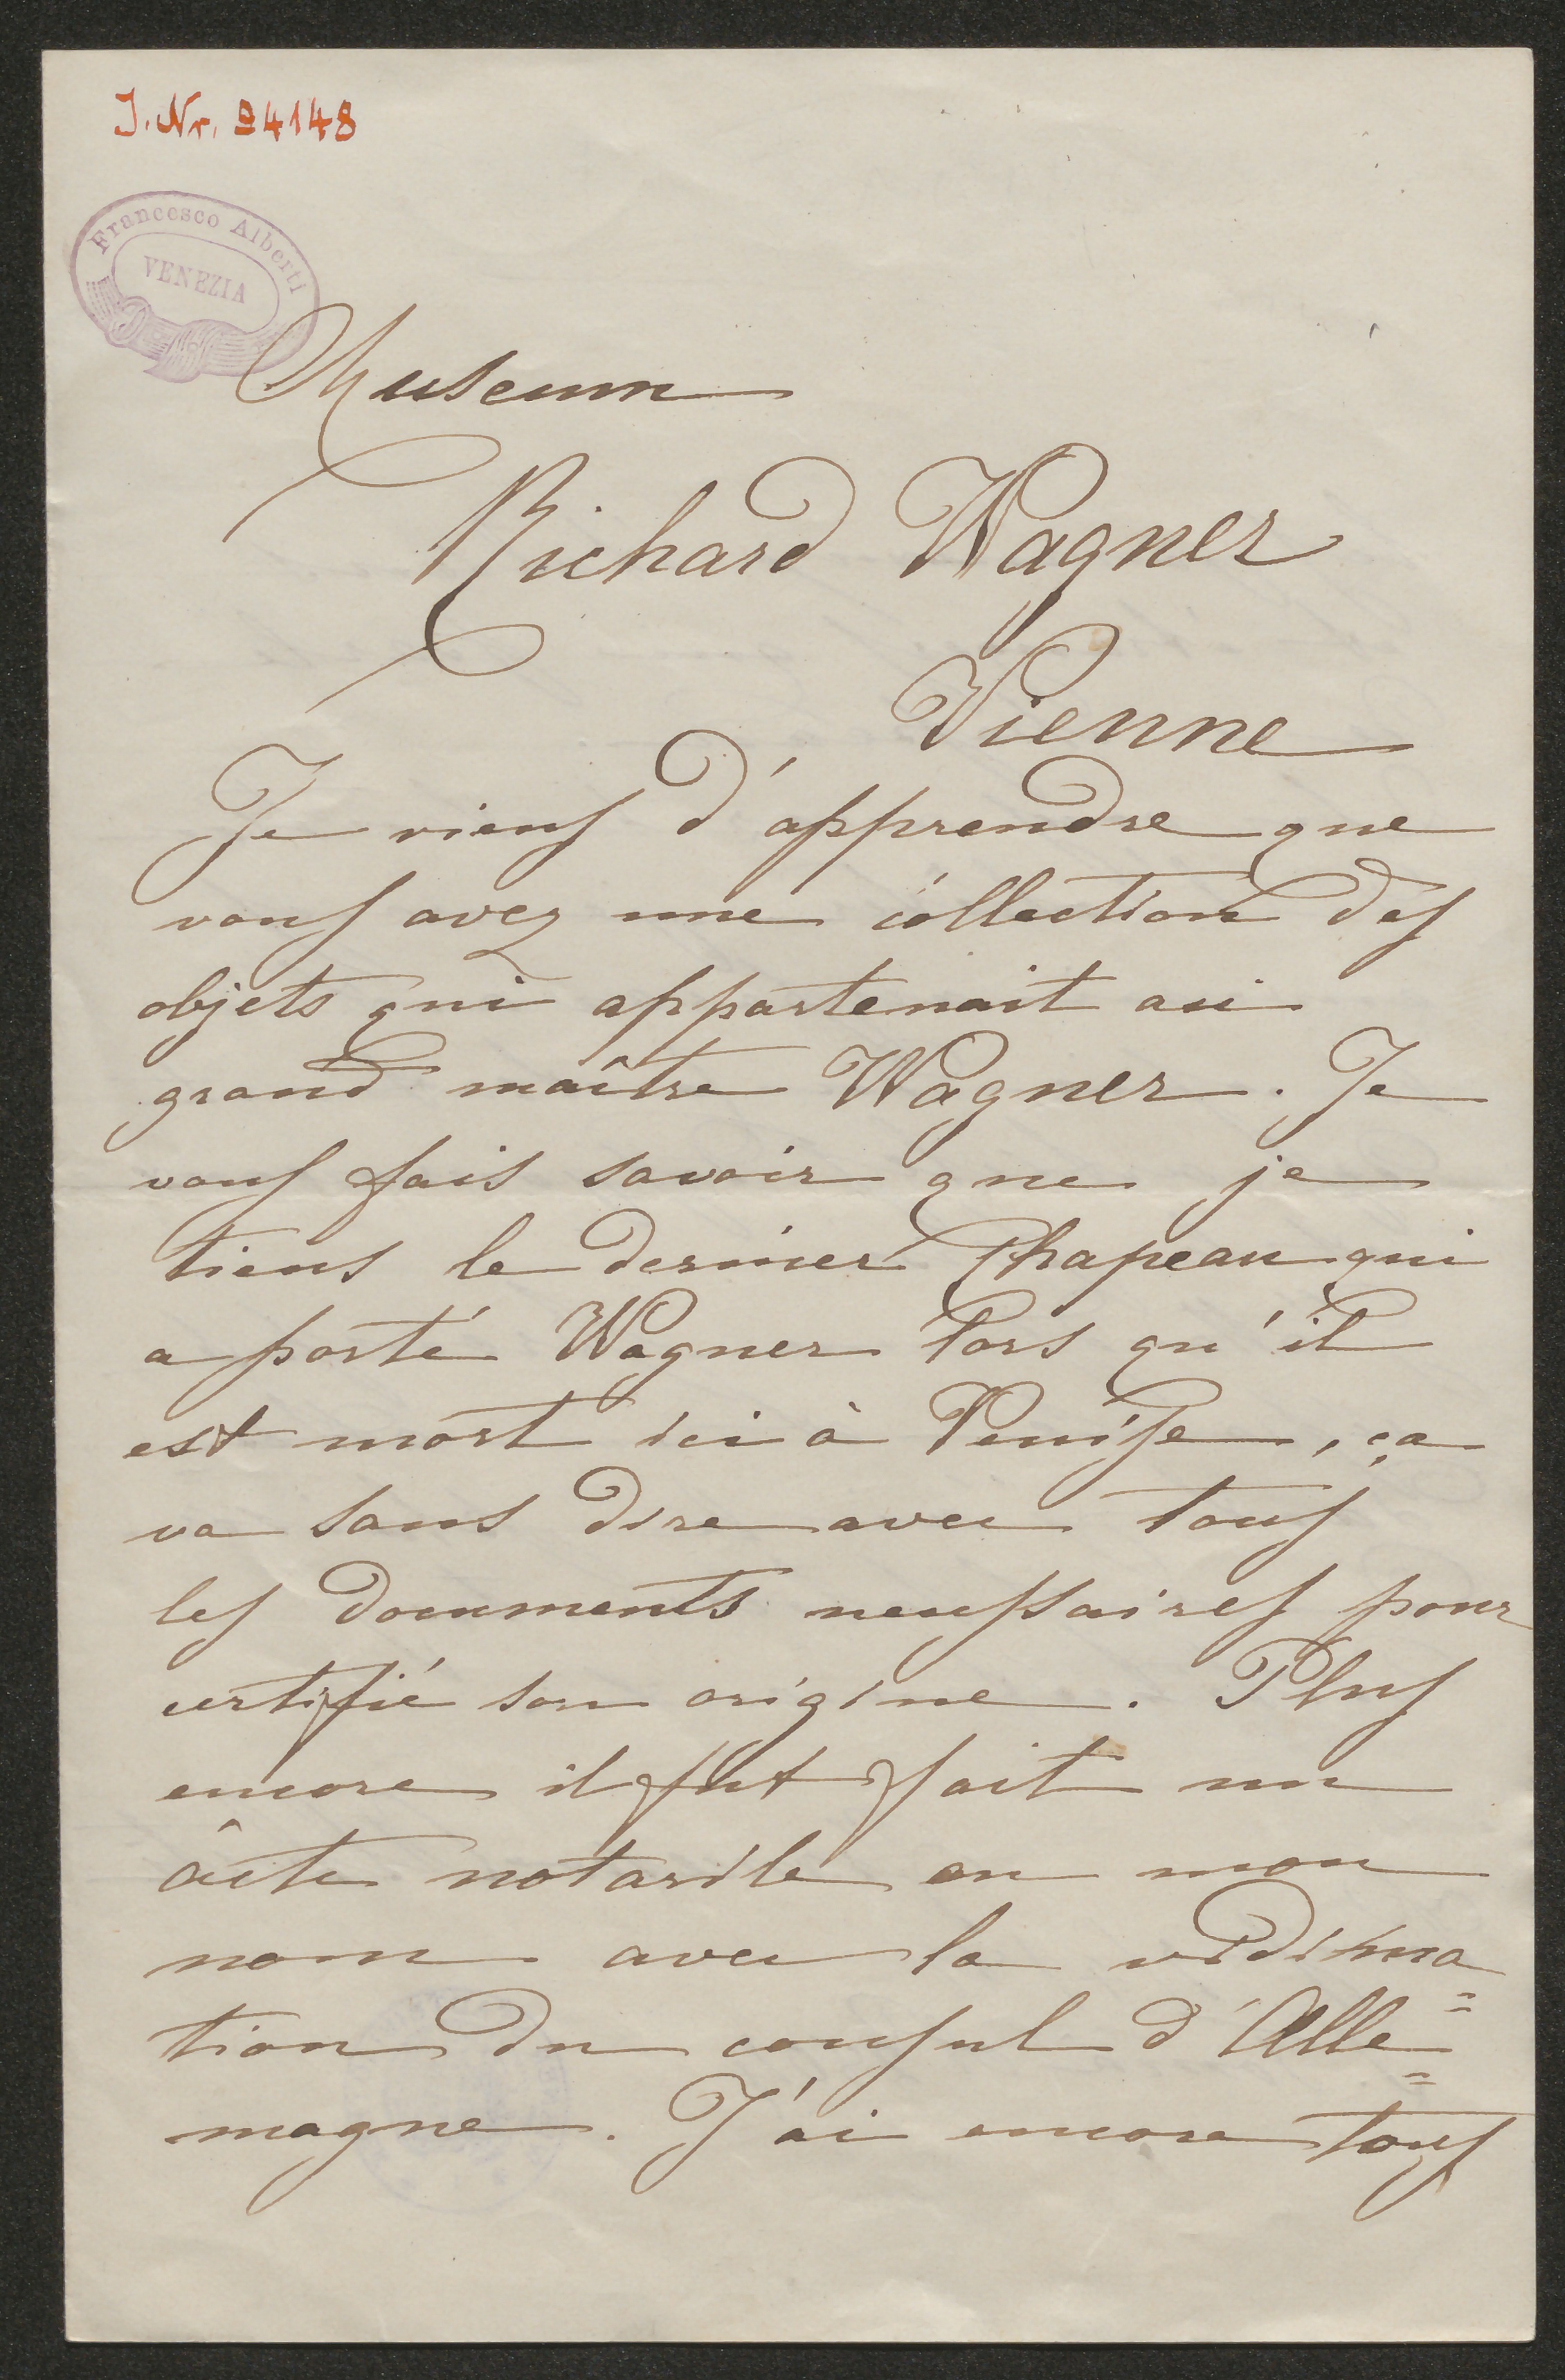 J. Nr. 94148
Francesco Alberti
VENEZIA
Museum
Richard Wagner
Vienne
Je viens d'apprendre que
vous avez une collection des
objets qui appartenait au
grand maître Wagner. Je
vous fais savoir que je
tiens le dernier Chapeau qui
a porté Wagner lors qu'il
est mort ici à Venise, ça
va sans dire avec tous
les documents necessaires pour
certifié son origine. Plus
encore il fut fait un
âcte notarile en mon
nom avec la vidima=
tion du consul d'Alle=
magne. J'ai encore tous